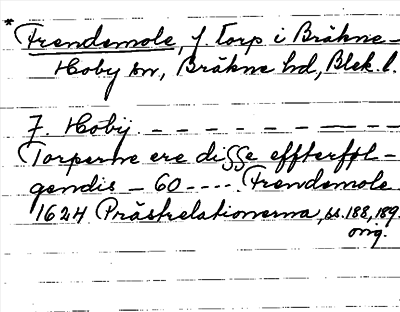 * Frendemole, f. torp i Bräkne-
Hoby sn, Bräkne hd, Blek. l.
J. Hobij - - - - - - -
Torperne ere disse effterføl-
gendis - 60 - - - - Frendemole
1624 Prästrelationerna, bl. 188, 189.
orig.